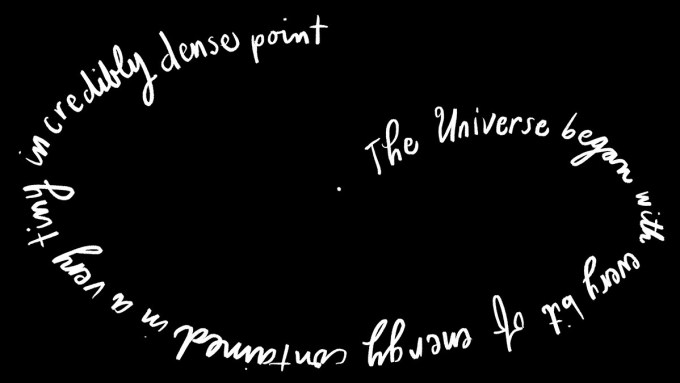 The Universe began with every bit of energy contained in a very tiny incredibly dense point